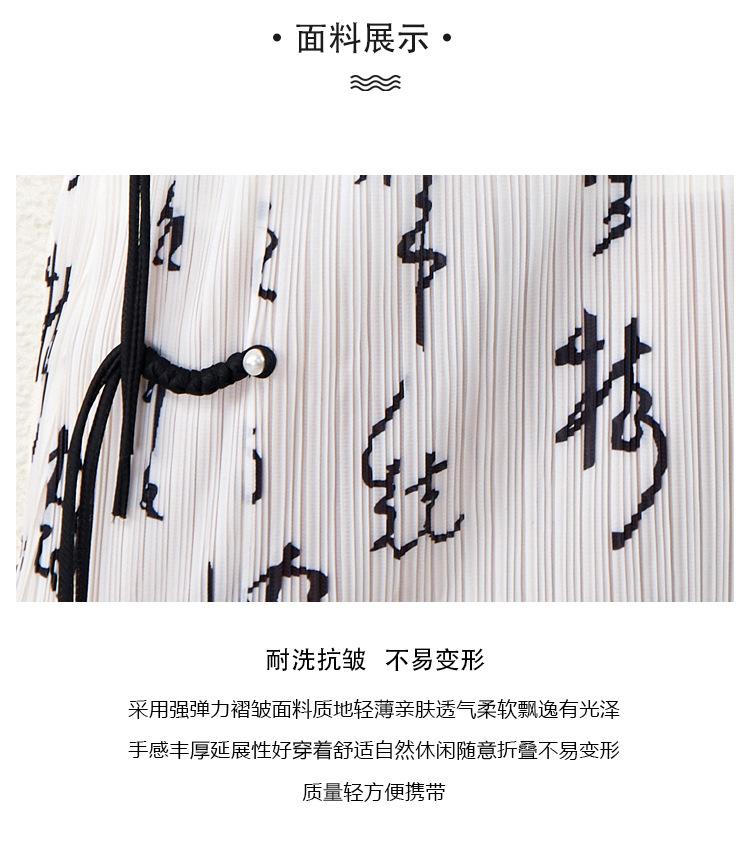 • 面料展示 •
耐洗抗皱 不易变形
采用强弹力褶皱面料质地轻薄亲肤透气柔软飘逸有光泽
手感丰厚延展性好穿着舒适自然休闲随意折叠不易变形
质量轻方便携带